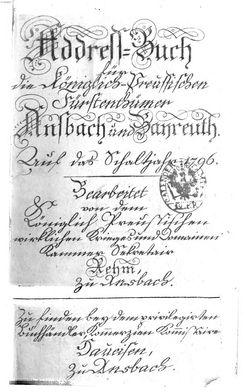 Address-Buch
für
die Königlich-Preussischen
Fürstenthümer
Ansbach und Bayreuth.
Auf das Schaltjahr 1796.
Bearbeitet
von dem
Königlich Preussischen
wirklichen Krieges und Domainen
Kammer Sekretair
Rehm,
zu Ansbach.
Zu finden bey dem privilegirten
Buchhändler, Commerzien Commissaire
zu Ansbach.